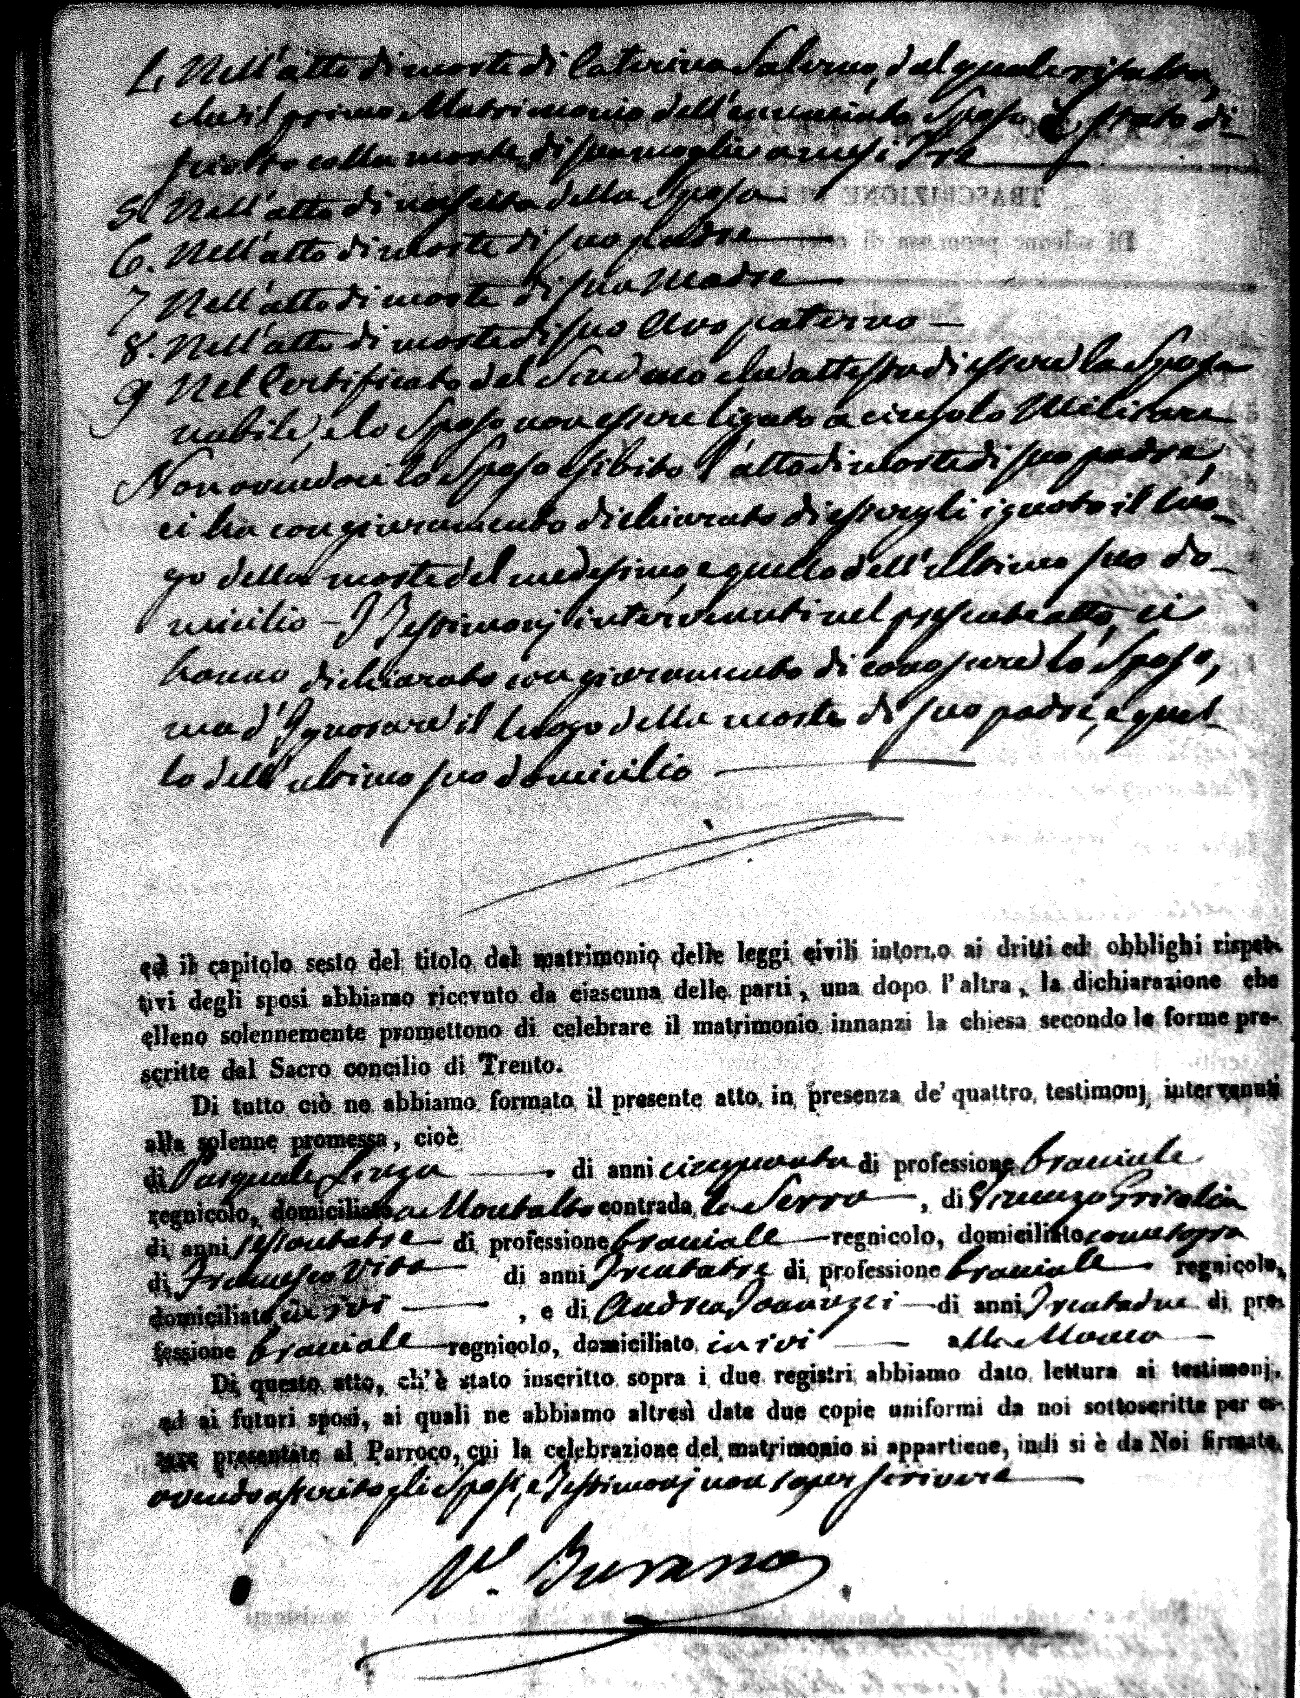 4. Nell'atto di morte di Caterina Salerno, dal quale risulta,
che il primo Matrimonio dell'enunciato Sposo è stato di-
sciolto colla morte di sua moglie a mesi Tre
5. Nell'atto di nascita della Sposa
6. Nell'atto di morte di suo padre
7 Nell'atto di morte di sua Madre
8. Nell'atto di morte di suo Avo paterno —
9 Nel Certificato del Sindaco che attesta di essere la Sposa
nubile, e lo Sposo non essere ligato a vincolo Militare
Non avendoci lo Sposo esibito l'atto di morte di suo padre,
ci ha con giuramento dichiarato di essergli ignoto il luo-
go della morte del medesimo, e quello dell'ultimo suo do-
micilio – I Testimonj intervenuti nel presente atto, ci
hanno dichiarato con giuramento di conoscere lo Sposo,
ma d'Ignorare il luogo della morte di suo padre, e quel-
lo dell'ultimo suo domicilio
ed il capitolo sesto del titolo del matrimonio delle leggi civili intorno ai dritti ed obblighi rispet-
tivi degli sposi abbiamo ricevuto da ciascuna delle parti, una dopo l'altra, la dichiarazione che
elleno solennemente promettono di celebrare il matrimonio innanzi la chiesa secondo le forme pre-
scritte dal Sacro concilio di Trento.
Di tutto ciò ne abbiamo formato il presente atto, in presenza de' quattro testimonj, intervenuti
alla solenne promessa, cioè
di Pasquale di anni cinquanta di professione bracciale
regnicolo, domiciliato a Montalto contrada la Serra, di Vincenzo
di anni sessantatre di professione bracciale regnicolo, domiciliato come sopra
di Francesco Vita di anni Trentatre di professione bracciale regnicolo,
domiciliato in ivi, e di Andrea Iannuzzi di anni Trentadue di pro-
fessione bracciale regnicolo, domiciliato in ivi
Di questo atto, ch'è stato inscritto sopra i due registri abbiamo dato lettura ai testimonj,
ed ai futuri sposi, ai quali ne abbiamo altresì date due copie uniformi da noi sottoscritte per es-
sere presentate al Parroco, cui la celebrazione del matrimonio si appartiene, indi si è da Noi firmato,
avendo asserito gli Sposi, e Testimonj non saper scrivere